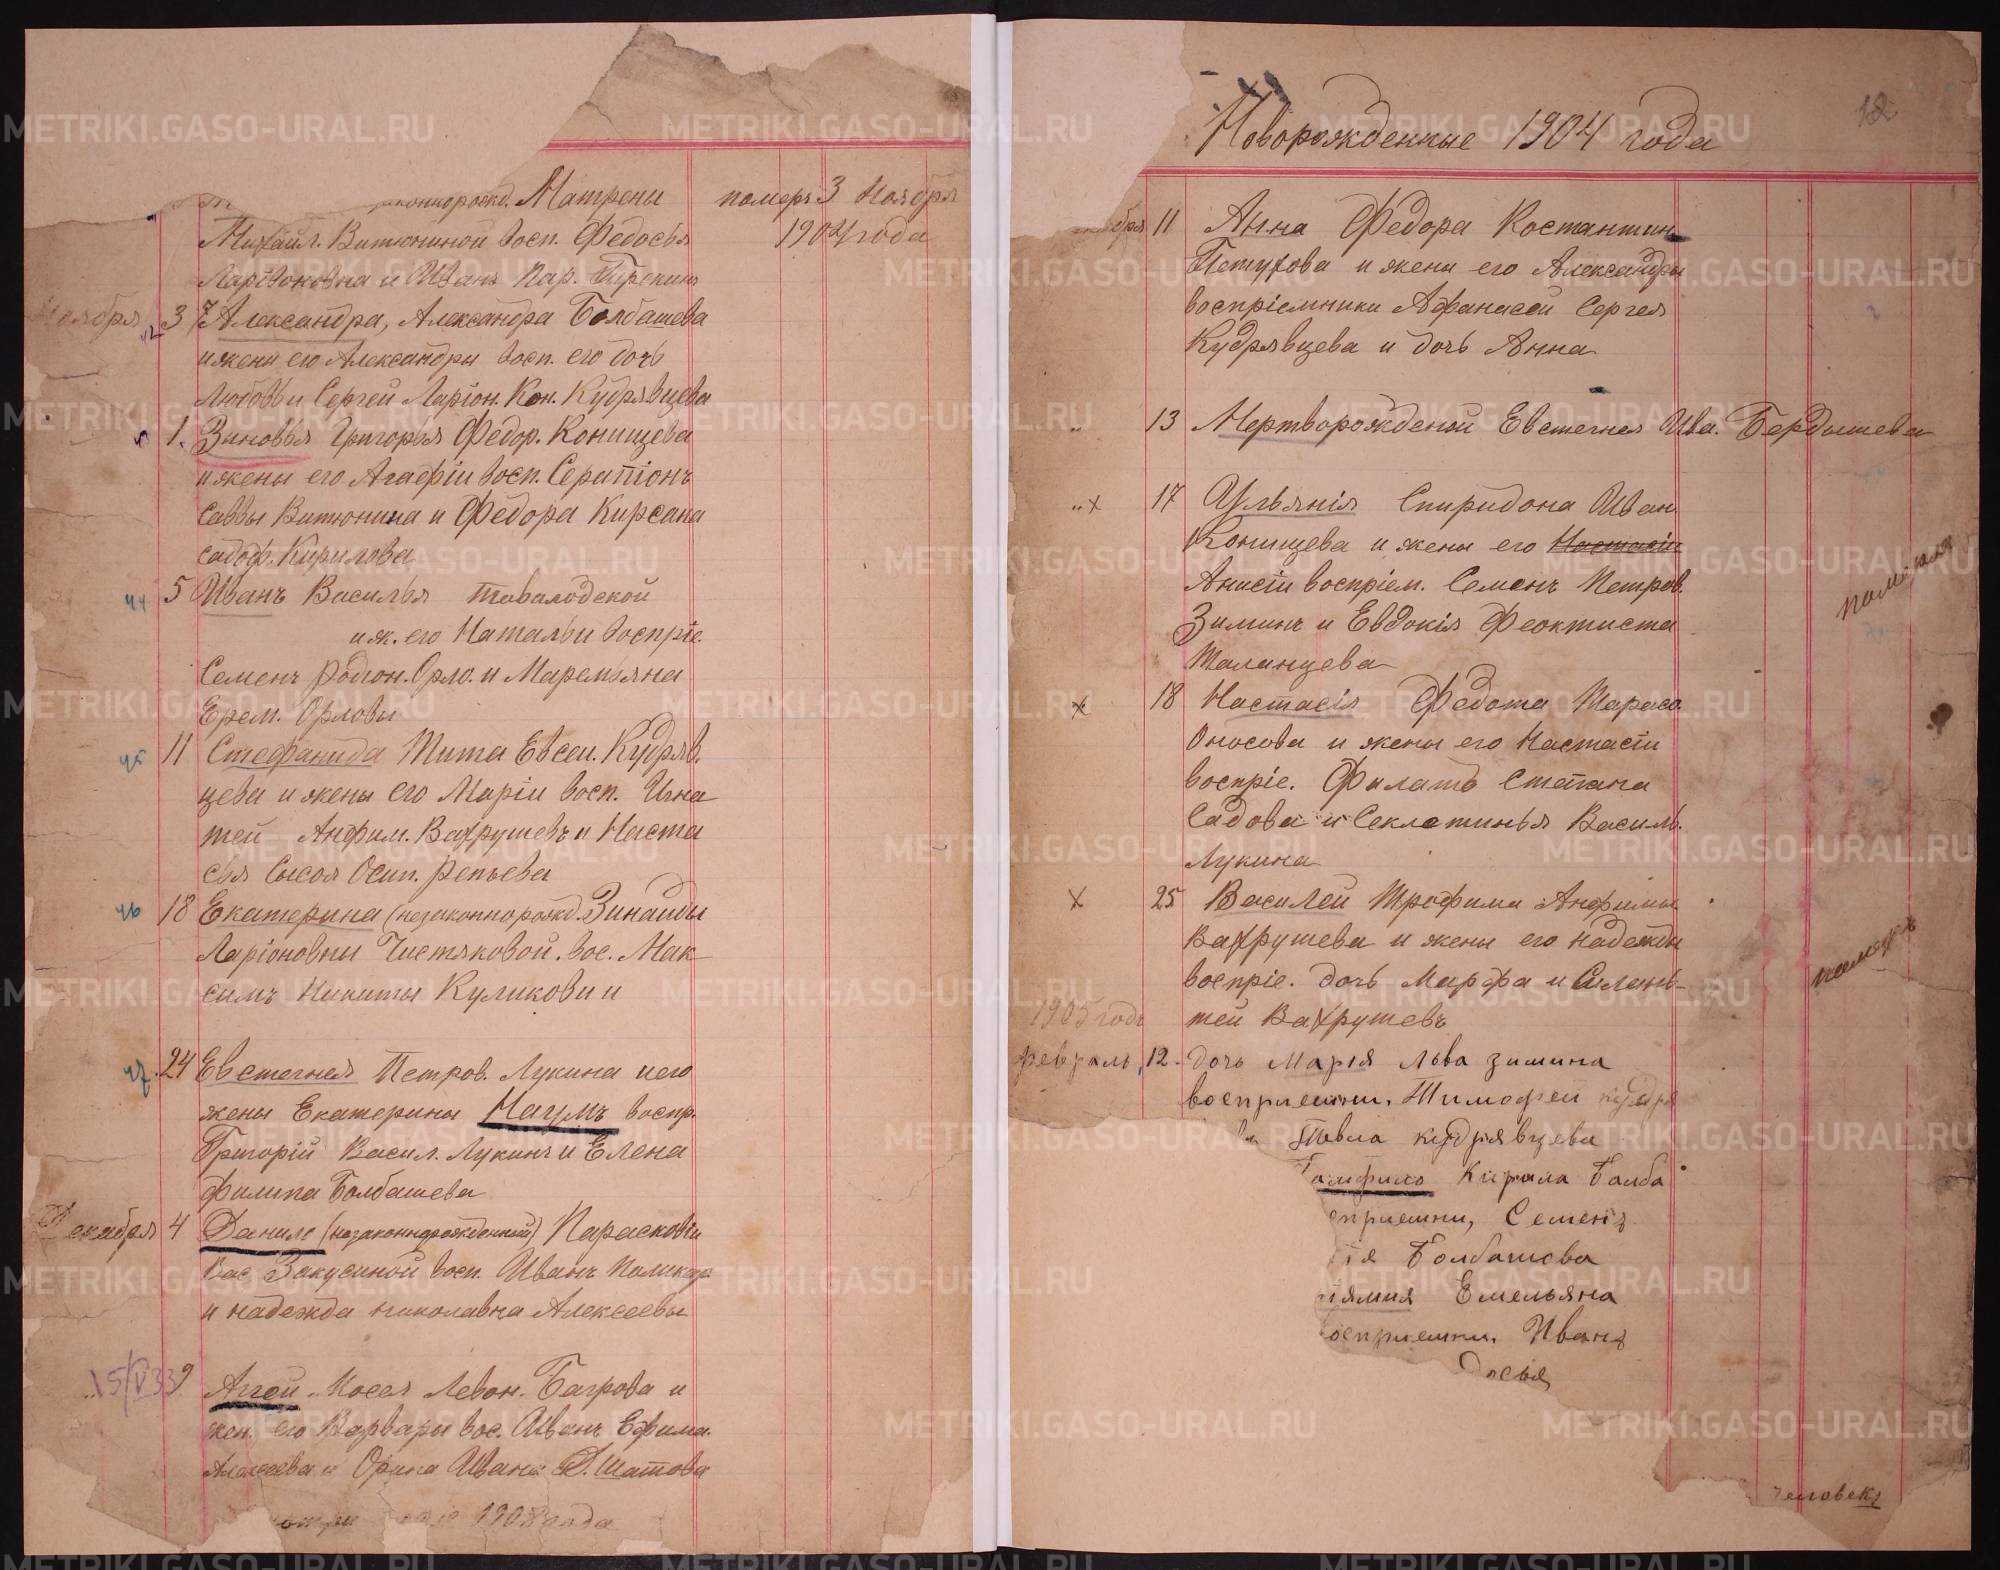 незаконнорожд. Матрены померъ 3 Ноября
Михаил. Витюниной восп. Федосья 1904 года
Ларивоновна и Иванъ
Ноября 3 Александра, Александра Болбашева
и жены его Александры восп. его дочь
Любовь и Сергей Ларіон. Кон. Кудрявцева
1. Зиновья Григорья Федор. Конищева
и жены его Агафіи восп. Серапіонъ
Саввы Витюнина и Федора Кирсана
Кирилова
44 5 Иванъ Василья
и ж. его Натальи воспріе.
Семенъ Родіон. Орло. и Маремьяна
Ерем. Орловы
45 11 Стефанида Тита Евсеи. Кудряв.
цева и жены его Маріи восп. Игна
тей Анфим. Вахрушевъ и Наста
сья Сысоя Осип. Репьева
46 18 Екатерина (незаконнорожд. Зинаиды
Ларіоновны Чистяковой. вос. Мак
симъ Никиты Куликовы и
47. 24 Евстегнея Петров. Лукина и его
жены Екатерины Наумъ воспр.
Григорій Васил. Лукинъ и Елена
Филипа Болбашева
Декабря 4 Данило (незаконнорожденный) Парасковіи
Вас. Закусиной восп. Иванъ Поликар
и надежда николавна Алексеевы
15/V33 9 Аггей Мосея Левон. Багрова и
жен. его Варвары вос. Иванъ Ефима.
Алексеева и Орина Ивана Д. Шатова
года
12
Новорожденные 1904 года
11 Анна Федора Костантин
Петухова и жены его Александры
воспріемники Афанасей Сергея
Кудрявцева и дочь Анна
" 13 Мертворожденой Евстегнея Ива. Бердышева
" x 17 Ульянія Спиридона Иван
Конищева и жены его Настасіи
Анисіи воспріем. Семенъ Петров.
Зиминъ и Евдокія Феоктиста
Таланцева
x 18 Настасія Федота Тарасо
Оносова и жены его Настасіи
воспріе. Филатъ Степана
Садова и Секлетинья Василь.
Лукина
x 25 Василей Трофима Анфимы.
Вахрушева и жены его надежды
воспріе. дочь Марфа и Силань-
тей Вахрушевъ
померъ
1905 годъ
февраль, 12. дочь Мария Льва зимина
восприемни. Тимофей кудря
Павла кудрявцева
Памфило Кирила Балба
сприемни, Семенъ
ія Болбашова
Емельяна
восприемни. Иванъ
досья
человекъ
METRIKI.GASO-URAL.RU